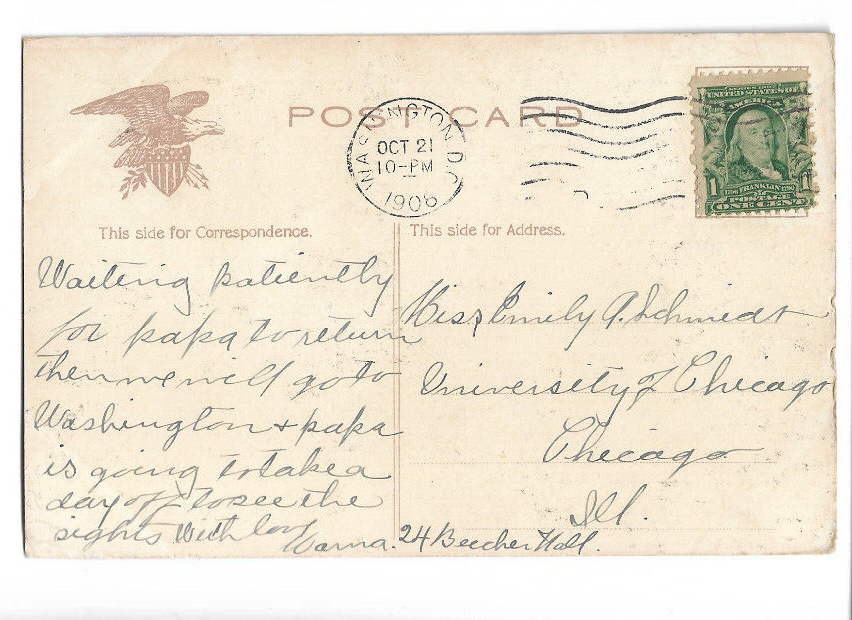 POST CARD
WASHINGTON D.C.
OCT 21
10-PM
1906
SERIES 1902
UNITED STATES OF
AMERICA
1706 FRANKLIN 1790
1 1
POSTAGE
ONE CENT
This side for Correspondence.
This side for Address.
Waiting patiently
for papa to return
then we will go to
Washington + papa
is going to take a
day off to see the
sights With love
Mama.
Miss Emily A. Schmidt
University of Chicago
Chicago
Ill.
24 Beecher Hall.